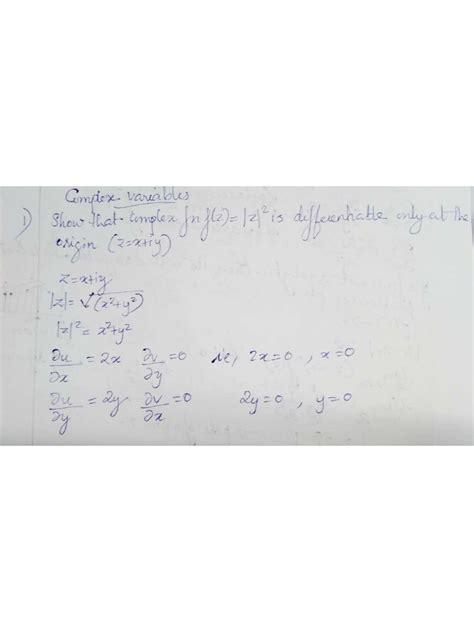 Complex variables
1) Show that complex fn f(z) = |z|² is differentiable only at the
origin (z=x+iy)
z=x+iy
|z| = √(x²+y²)
|z|² = x²+y²
∂u/∂x = 2x ∂v/∂y = 0 ie, 2x=0 , x=0
∂u/∂y = 2y ∂v/∂x = 0 2y=0 , y=0